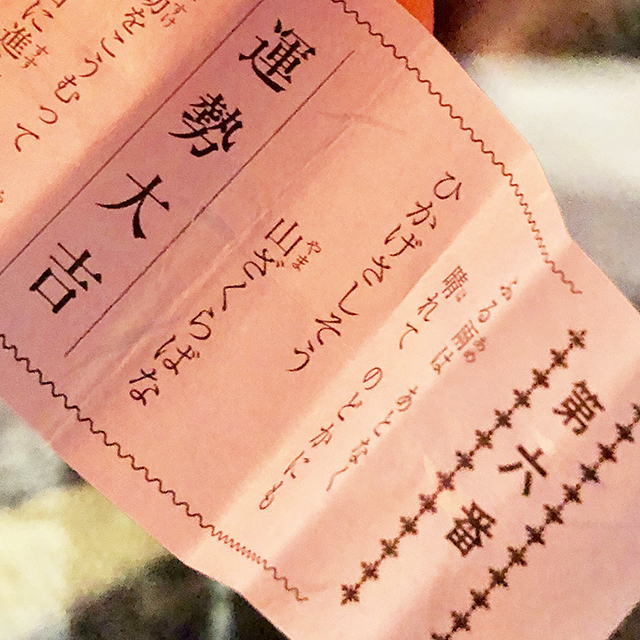 第六番
ふる雨は あとなく
晴れて のどかにも
ひかげさしそう
山ざくらばな
運勢大吉
をこうむって